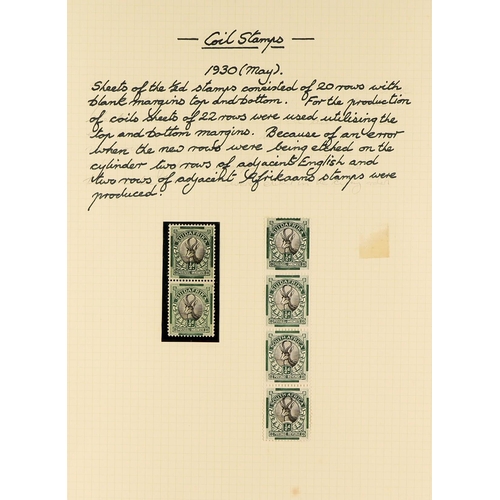 — Coil Stamps —
1930 (May).
Sheets of the ½d stamps consisted of 20 rows with
blank margins top and bottom. For the production
of coils sheets of 22 rows were used utilising the
top and bottom margins. Because of an error
when the new rows were being etched on the
cylinder two rows of adjacent English and
two rows of adjacent Afrikaans stamps were
produced.
SUIDAFRIKA
SUIDAFRIKA
SUIDAFRIKA
SUIDAFRIKA
SOUTHAFRICA
SOUTHAFRICA